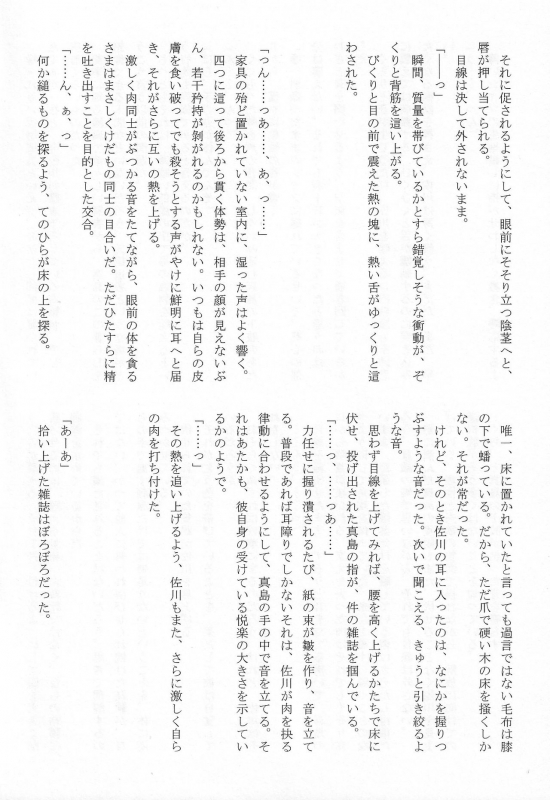 それに促されるようにして、眼前にそそり立つ陰茎へと、
唇が押し当てられる。
目線は決して外されないまま。
「――っ」
瞬間、質量を帯びているかとすら錯覚しそうな衝動が、ぞ
くりと背筋を這い上がる。
びくりと目の前で震えた熱の塊に、熱い舌がゆっくりと這
わされた。
「っん……っあ……、あ、っ……」
家具の殆ど置かれていない室内に、湿った声はよく響く。
四つに這って後ろから貫く体勢は、相手の顔が見えないぶ
ん、若干矜持が剝がれるのかもしれない。いつもは自らの皮
膚を食い破ってでも殺そうとする声がやけに鮮明に耳へと届
き、それがさらに互いの熱を上げる。
激しく肉同士がぶつかる音をたてながら、眼前の体を貪る
さまはまさしくけだもの同士の目合いだ。ただひたすらに精
を吐き出すことを目的とした交合。
「……ん、ぁ、っ」
何か縋るものを探るよう、てのひらが床の上を探る。
唯一、床に置かれていたと言っても過言ではない毛布は膝
の下で蟠っている。だから、ただ爪で硬い木の床を掻くしか
ない。それが常だった。
けれど、そのとき佐川の耳に入ったのは、なにかを握りつ
ぶすような音だった。次いで聞こえる、きゅうと引き絞るよ
うな音。
思わず目線を上げてみれば、腰を高く上げるかたちで床に
伏せ、投げ出された真島の指が、件の雑誌を掴んでいる。
「……っ、……っあ……」
力任せに握り潰されるたび、紙の束が皺を作り、音を立て
る。普段であれば耳障りでしかないそれは、佐川が肉を抉る
律動に合わせるようにして、真島の手の中で音を立てる。そ
れはあたかも、彼自身の受けている悦楽の大きさを示してい
るかのようで。
「……っ」
その熱を追い上げるよう、佐川もまた、さらに激しく自ら
の肉を打ち付けた。
「あーあ」
拾い上げた雑誌はぼろぼろだった。